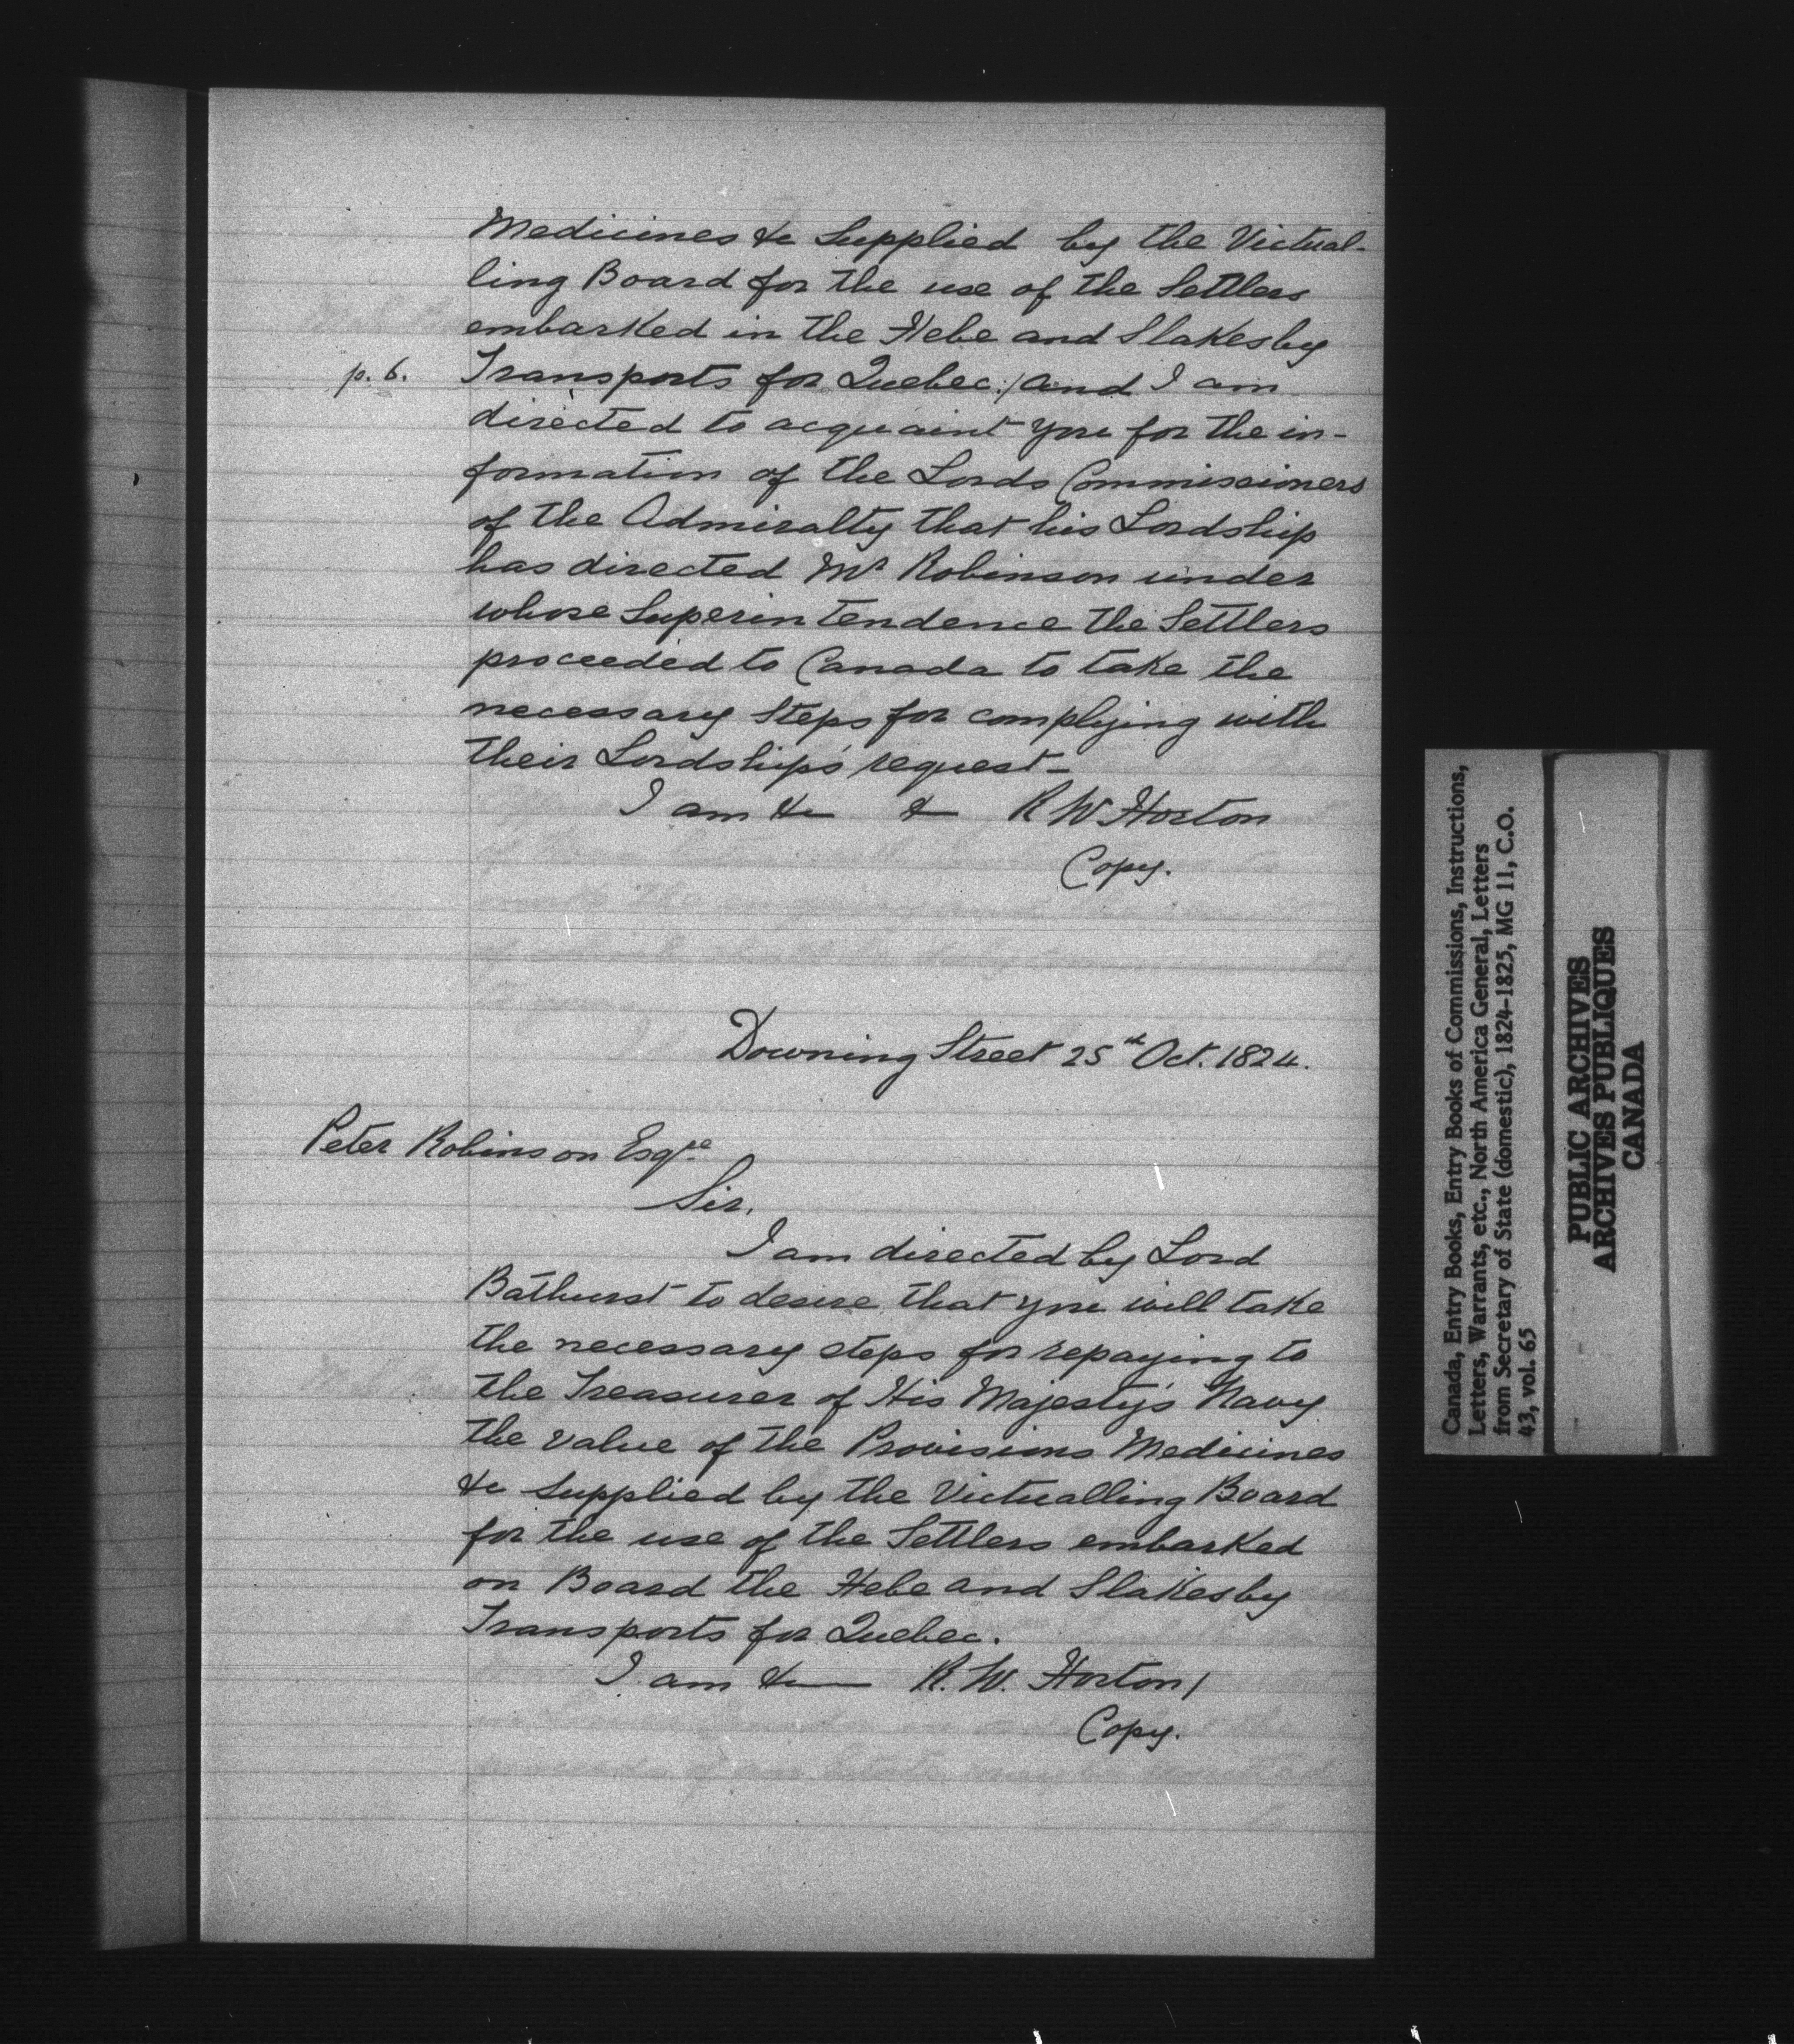 Medicines &c Supplied by the Victual-
ling Board for the use of the Settlers
embarked in the Hebe and Slakesby
p. 6. Transports for Quebec:/and I am
directed to acquaint you for the in-
formation of the Lords Commissioners
of the Admiralty that his Lordship
has directed Mr Robinson under
whose Superintendence the Settlers
proceeded to Canada to take the
necessary steps for complying with
their Lordships' request-
I am &c & R W Horton
Copy.
Downing Street 25th Oct. 1824.
Peter Robinson Esqre
Sir,
I am directed by Lord
Bathurst to desire that you will take
the necessary steps for repaying to
the Treasurer of His Majesty's Navy
the value of the Provisions Medicines
&c supplied by the Victualling Board
for the use of the Settlers embarked
on Board the Hebe and Slakesby
Transports for Quebec.
I am &c — R. W. Horton/
Copy.
Canada, Entry Books, Entry Books of Commissions, Instructions,
Letters, Warrants, etc., North America General, Letters
from Secretary of State (domestic), 1824-1825, MG 11, C.O.
43, vol. 65
PUBLIC ARCHIVES
ARCHIVES PUBLIQUES
CANADA